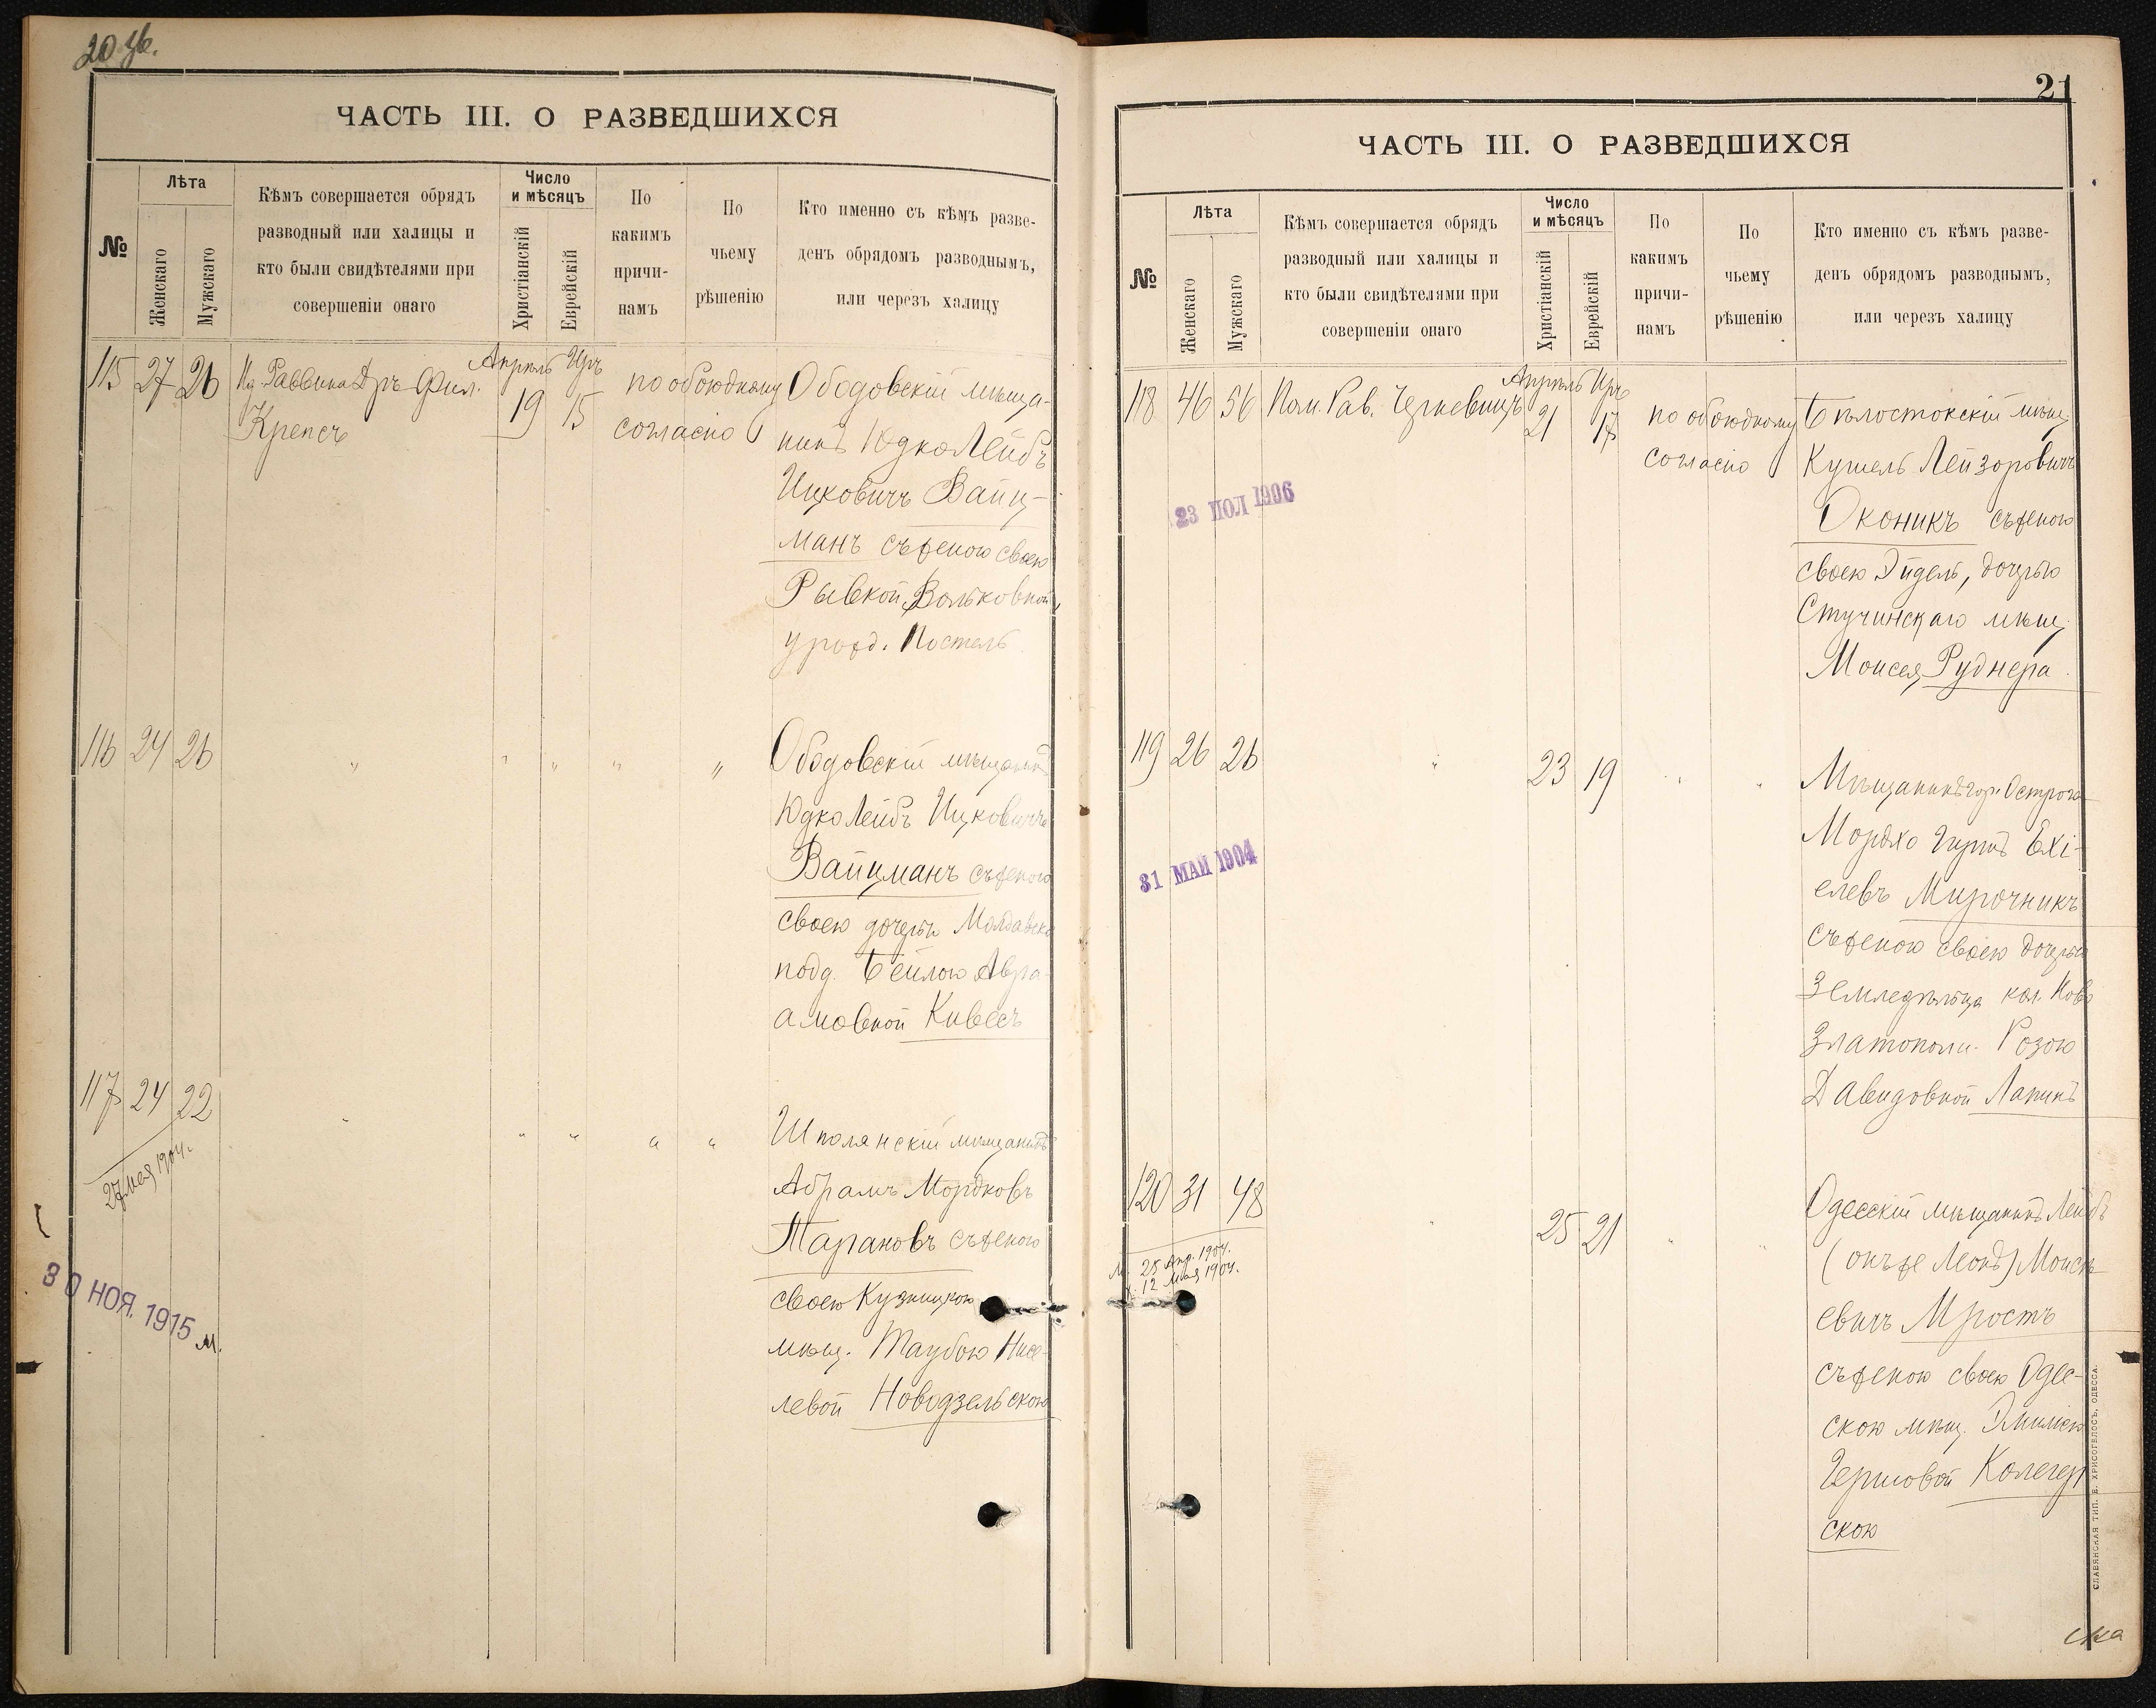 20 об.
ЧАСТЬ III. О РАЗВЕДШИХСЯ
№
Лѣта
Женскаго
Мужскаго
Кѣмъ совершается обрядъ
разводный или халицы и
кто были свидѣтелями при
совершеніи онаго
Число
и мѣсяцъ
Христіанскій
Еврейскій
По
какимъ
причи-
намъ
По
чьему
рѣшенію
Кто именно съ кѣмъ разве-
денъ обрядомъ разводнымъ,
или черезъ халицу
115 27 26 Раввина Д-ръ Фил.
Крепсъ
Апрель Іиръ
19 15
по обоюдному
согласію
Ободовскій мѣща-
нинъ Юдко Лейбъ
Ицковичъ Вайц-
манъ съ женою своею
Рывкой Вольковной,
урожд. Постель
116 24 26 " " " " "
Ободовскій мѣщанинъ
Юдко Лейбъ Ицковичъ
Вайцманъ съ женою
своею дочерью Молдавск
подд. Бейлою Авра-
амовной Кивесъ
117 24 22 " " " " "
27 мая 1904.
30 НОЯ. 1915 м.
Шполянскій мѣщанинъ
Абрамъ Мордковъ
Тарановъ съ женою
своею Кузницкою
мѣщ. Таубою Нисе-
левой Новодзельскою
21
ЧАСТЬ III. О РАЗВЕДШИХСЯ
№
Лѣта
Женскаго
Мужскаго
Кѣмъ совершается обрядъ
разводный или халицы и
кто были свидѣтелями при
совершеніи онаго
Число
и мѣсяцъ
Христіанскій
Еврейскій
По
какимъ
причи-
намъ
По
чьему
рѣшенію
Кто именно съ кѣмъ разве-
денъ обрядомъ разводнымъ,
или черезъ халицу
118 46 56 Пом. Рав. Черкевичъ
Апрель Іиръ
21 17
по обоюдному
согласію
23 ІЮЛ 1906
Бѣлостокскій мѣщ.
Кушель Лейзоровичъ
Оконикъ съ женою
своею Эйдель, дочерью
Стучинскаго мѣщ.
Моисея Руднера.
119 26 26 " 23 19 " "
31 МАЙ 1904
Мѣщанинъ гор. Острога
Мордхо Гершъ Ехі-
елевъ Мирочникъ
съ женою своею дочерью
Земледѣльца кол. Ново
Златополи. Розою
Давидовной Лапинъ
120 31 48 " 25 21 " "
25 Апр. 1904.
12 Мая 1904.
Одесскій мѣщанинъ Лейбъ
(онъ же Леонъ) Моисе-
евичъ Мростъ
съ женою своею Одес-
скою мѣщ. Эмиліею
Гершовой Колегер
скою
СЛАВЯНСКАЯ ТИП. Е. ХРИСОГЕЛОСЪ, ОДЕССА.